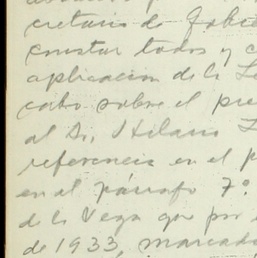 cretario de Gabi
constar todos y c
aplicación de la L
cabo sobre el pre
al Sr. Hilario
referencia en el p
en el párrafo 7º.
de la Vega que por
de 1933, marcado